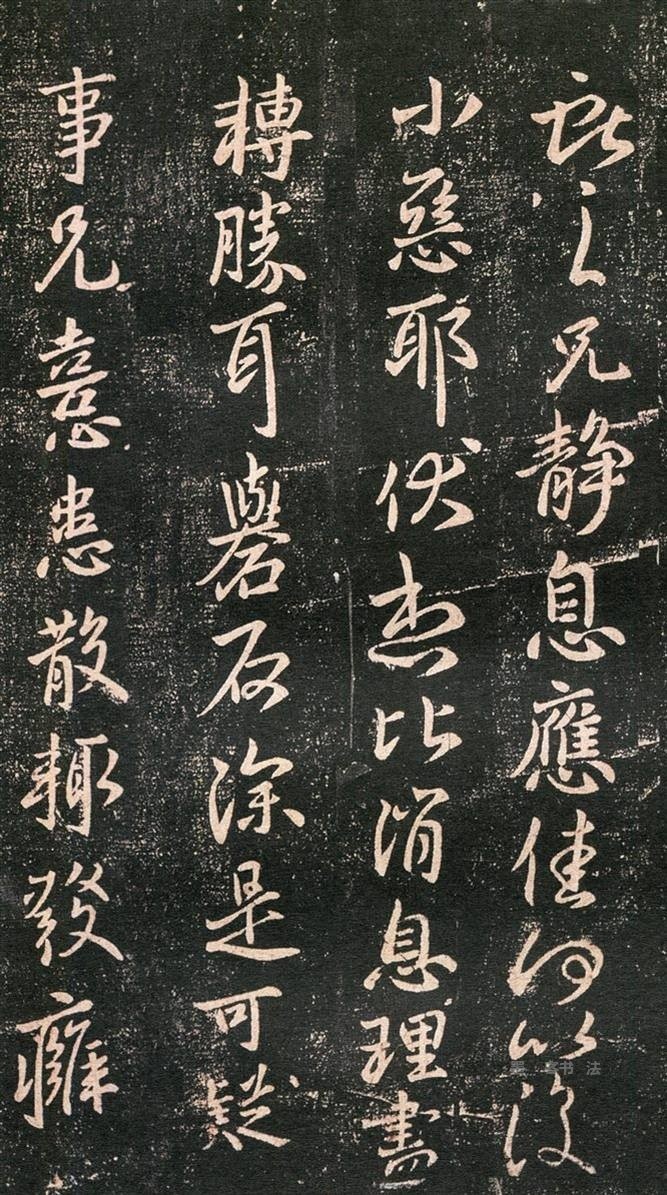 獻之兄靜息應佳何以復
小惡耶伏想比消息理盡
轉勝耳礜石深是可疑
事兄憙患散輒發癰
书 法